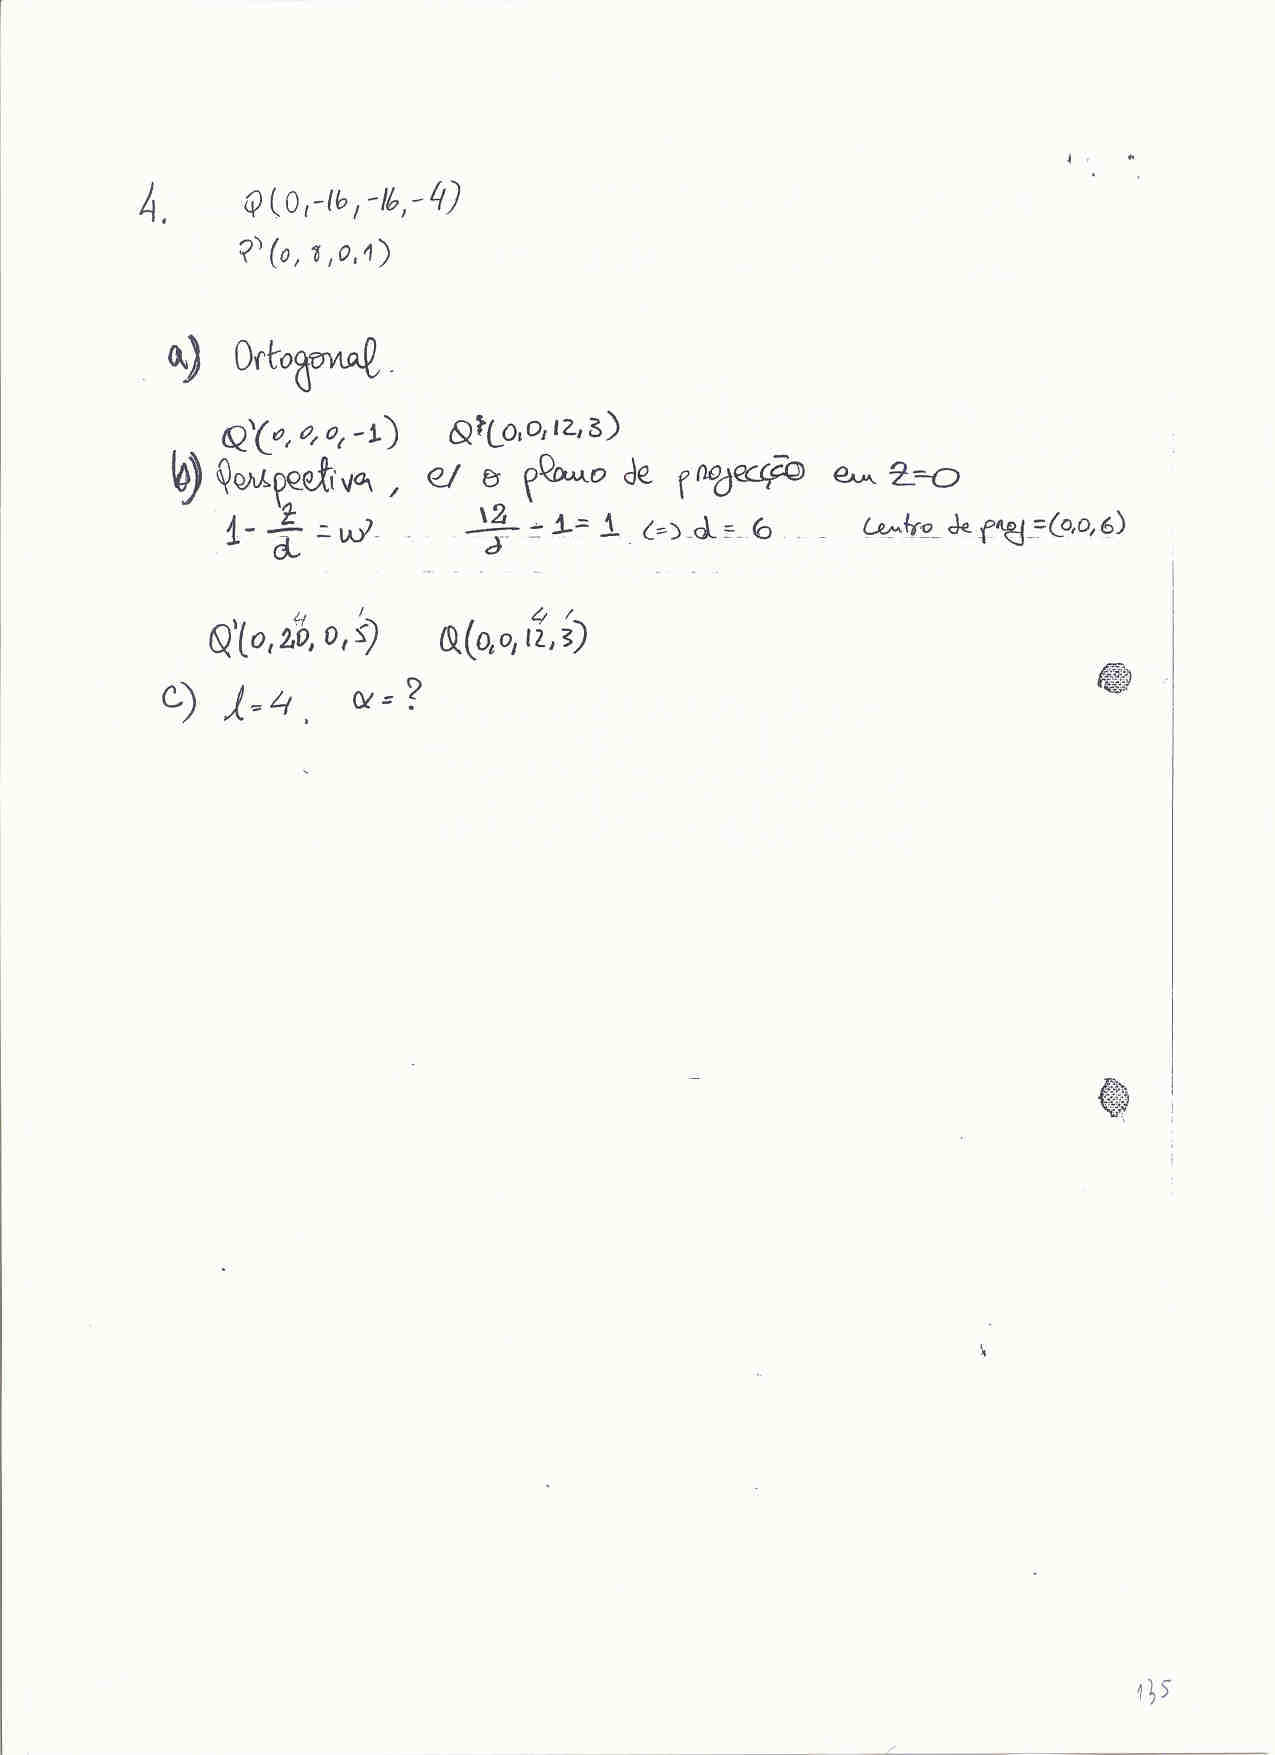 4. Q(0,-16,-16,-4)
P'(0, 8,0,1)
a) Ortogonal.
Q'(0,0,0,-1) Q(0,0,12,3)
b) Perspectiva, c/ o plano de projecção em z=0
1 - z/d = w 12/d - 1 = 1 (=) d = 6 Centro de proj =(0,0,6)
4 1 4 1
Q'(0,20,0,5) Q(0,0,12,3)
c) l=4, α=?
135